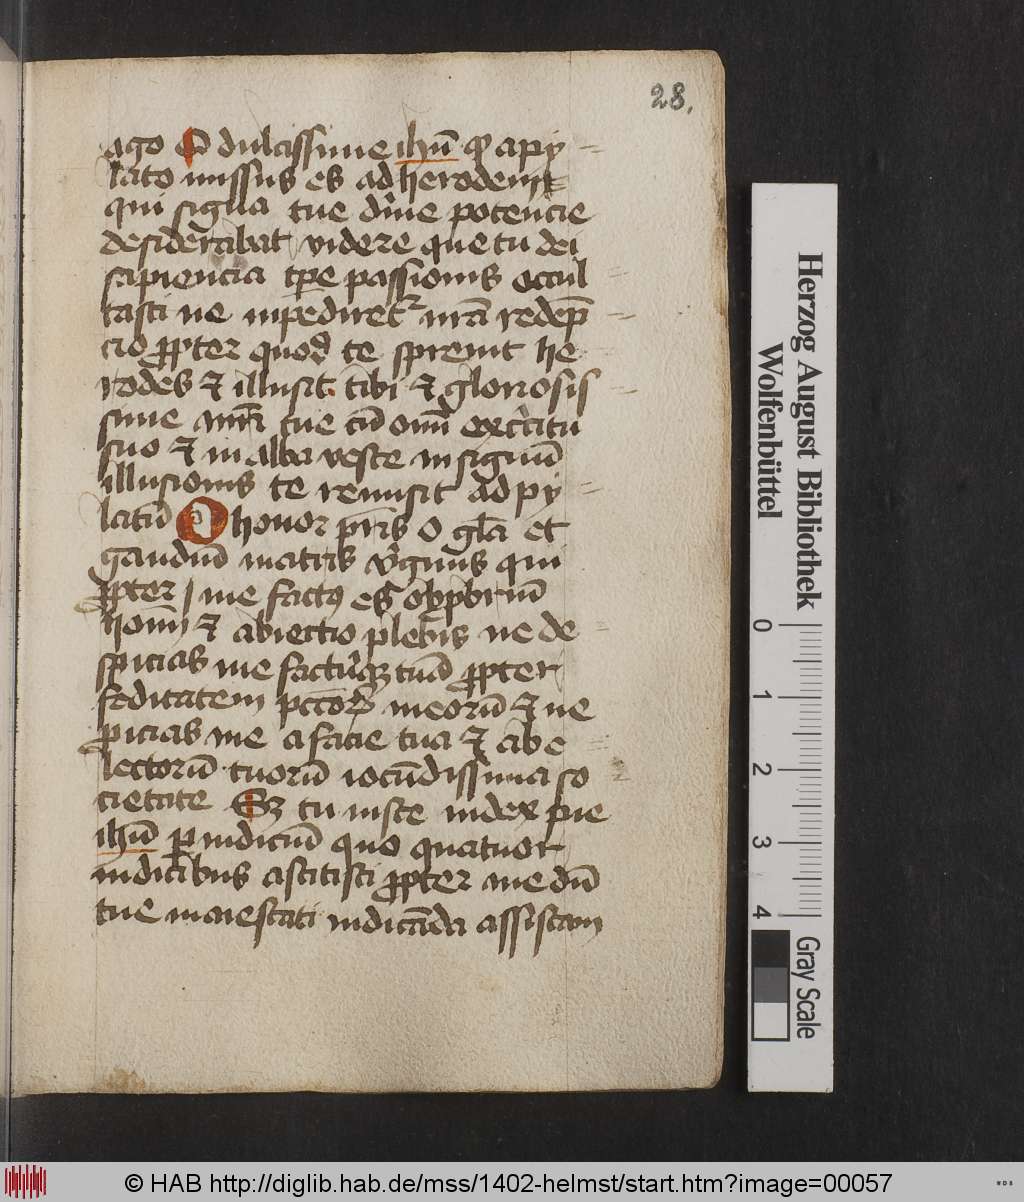 28.
ago O dulcissime ihū qͥ a py
lato missus es ad herodem
qui signa tue dīuīe potencie
desiderabat videre que tu dei
sapiencia tp̄e passionis occul
tasti ne īpediretᷣ nr̄a redēp
cio ꝓpter quod te spreuit he
rodes et illusit tibi et gloriosis
sime tue cū omī exercitu
suo et in alba veste in signū
illusionis te remisit ad py
latū O honor pr̄is o gl̄a et
gaudiū matris v̓ginis qui
ꝓpter me factus es obpbriū
homī et abiectio plebis ne de
spicias me facturāqꝫ tuā ꝓpter
feditatem pctō meorū et ne
ꝓicias me a facie tua et ab e
lectorū tuorū iocūdissima so
cietate Eꝫ tu iuste iudex pie
ihū per iudiciū quo quatuor
iudicibus astitisti ꝓpter me dū
tue maiestati iudicāda assistam
Herzog August Bibliothek
Wolfenbüttel
0 1 2 3 4
Gray Scale
© HAB http://diglib.hab.de/mss/1402-helmst/start.htm?image=00057